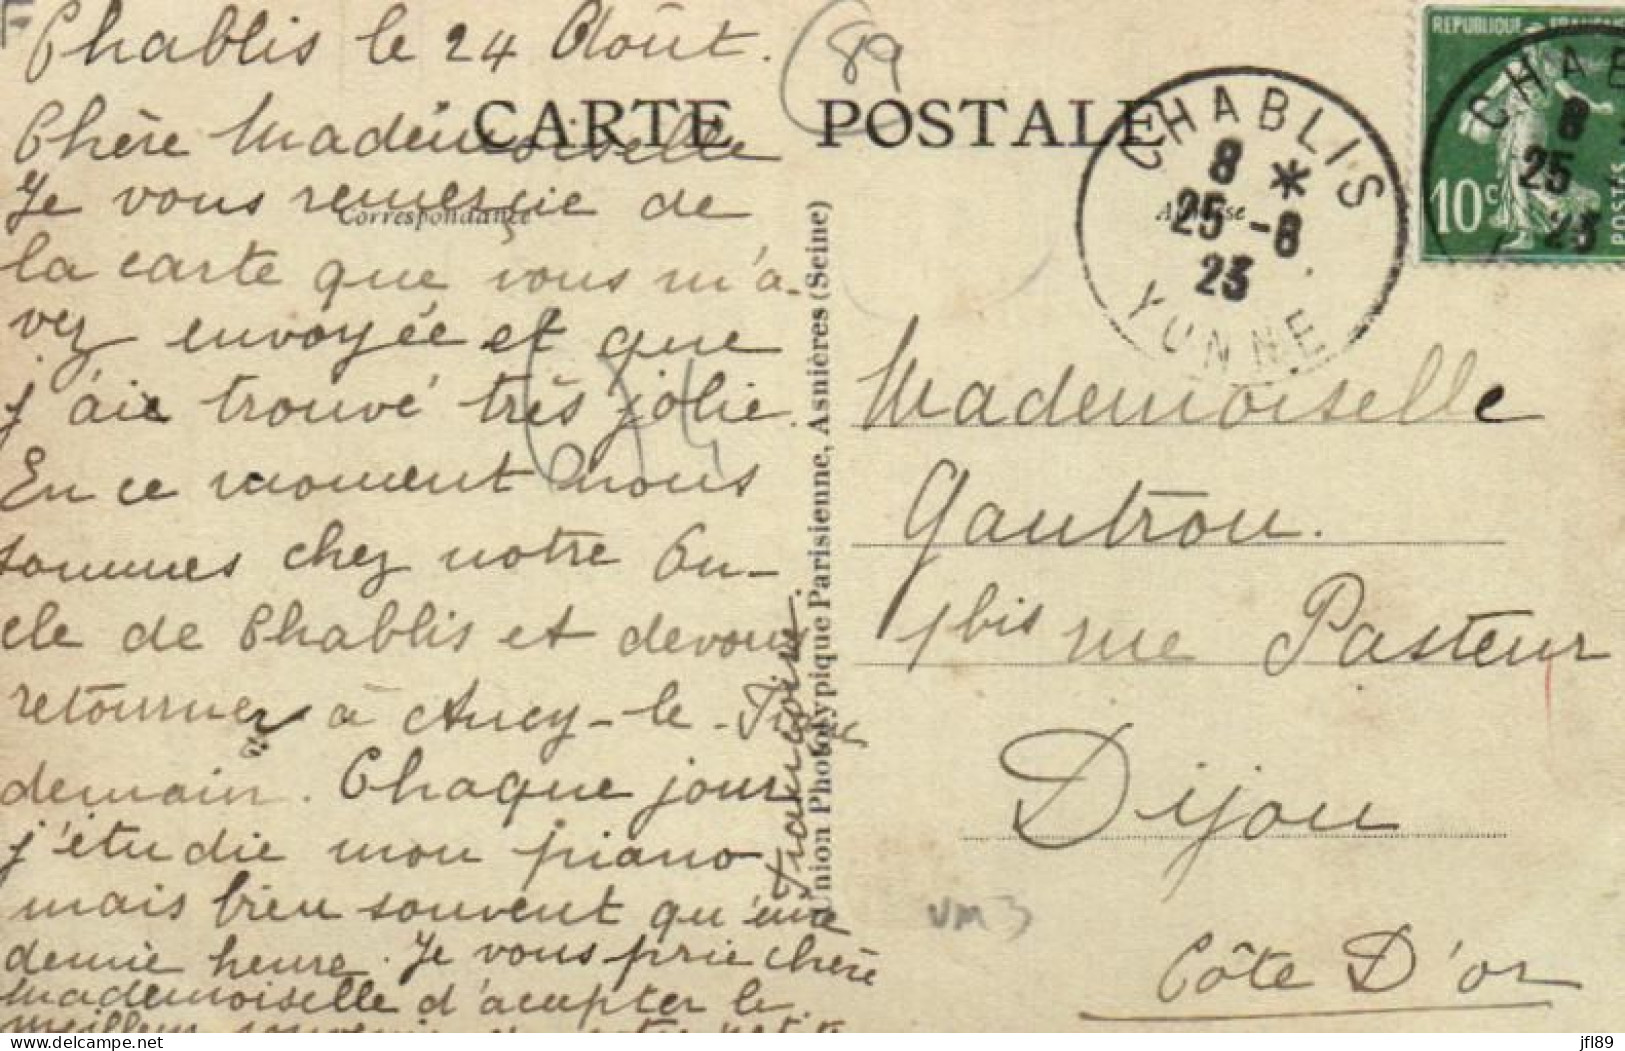 Chablis le 24 Août.
89
CARTE POSTALE
Chère Mademoiselle
Je vous remercie de
Correspondance
la carte que vous m'a-
vez envoyée et que
j'aie trouvé très jolie.
En ce moment nous
sommes chez notre On-
cle de Chablis et devons
retourner à Ancy-le-Franc
demain. Chaque jour
j'étudie mon piano
mais bien souvent qu'une
demie heure. Je vous prie chère
mademoiselle d'accepter le
meilleur souvenir de votre petite
Union Photolypique Parisienne, Asnières (Seine)
CHABLIS
8 *
25 -8
23
YONNE
REPUBLIQUE FRANÇAISE
10c
POSTES
CHAB
8
25
23
Mademoiselle
Gautron.
1 bis rue Pasteur
Dijon
Côte D'or
VM3
delcampe.net
jfl89